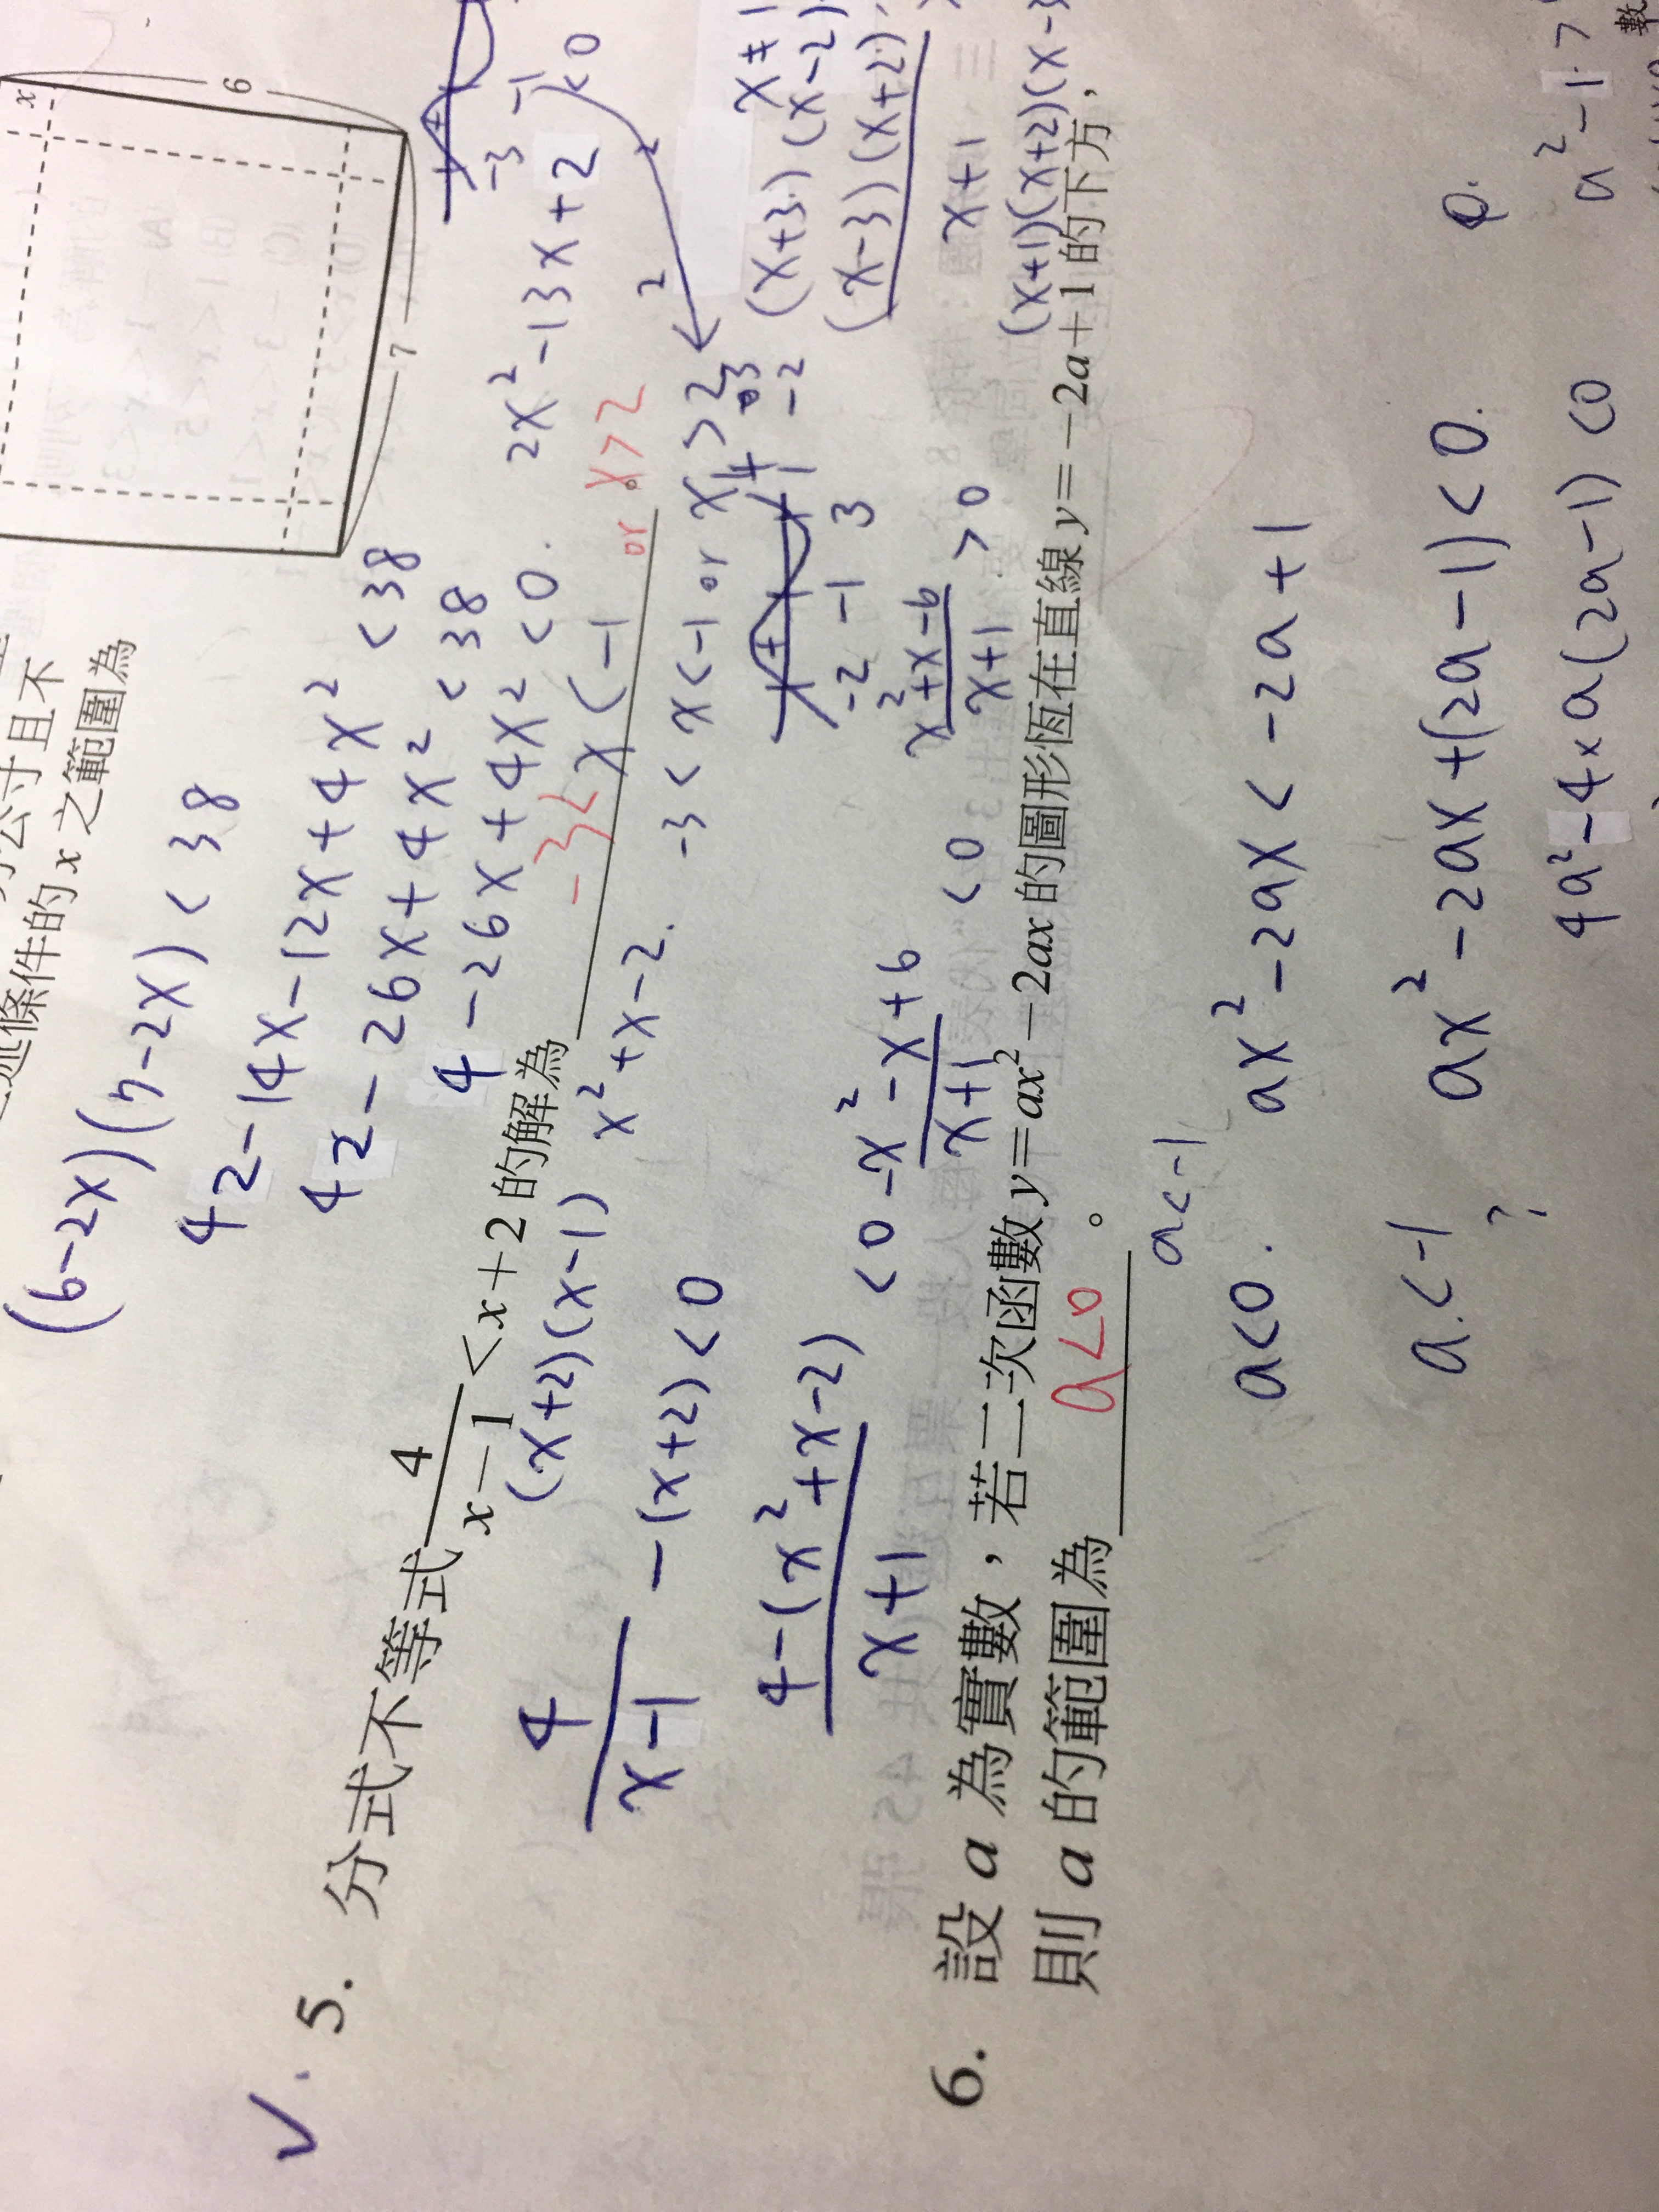 條件的 x 之範圍為
x
6
7
(6-2x)(7-2x)<38
42-14x-12x+4x²<38
42-26x+4x²<38
4-26x+4x²<0.
2x²-13x+2
<0
-3 -1
✓. 5. 分式不等式 4/(x-1) < x+2 的解為 -3<x<-1 or x>2
(x+2)(x-1) x²+x-2.
4/(x-1) -(x+2)<0
-3<x<-1 or x>2
(4-(x²+x-2))/(x+1) <0
(-x²-x+6)/(x+1) <0
(x²+x-6)/(x+1) >0
-2 -1 3
x≠1
(x+3)(x-2)
(x-3)(x+2)
x+1
(x+1)(x+2)(x-3
6. 設 a 為實數,若二次函數 y=ax²-2ax 的圖形恆在直線 y=-2a+1 的下方,
則 a 的範圍為 a<0 。
a<-1
a<0. ax²-2ax<-2a+1
a<-1 ax²-2ax+(2a-1)<0.
?
4a²-4×a(2a-1)<0
數